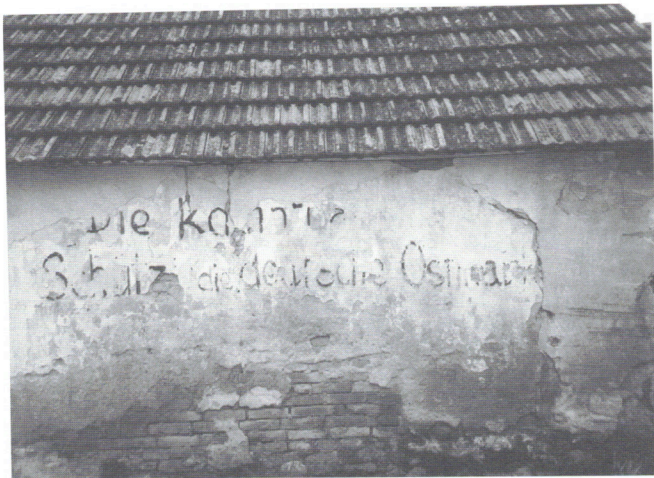 Die
Schütz die deutsche Ostmark